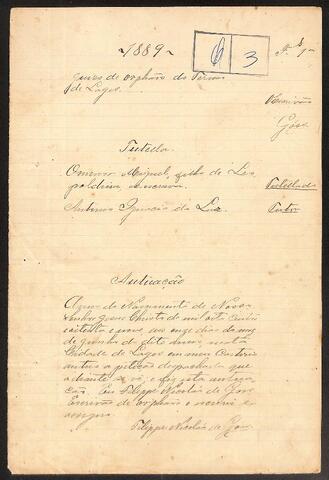 1889
6 3
Juizo de orphãos do Termo
de Lages
Escrivão
Góss
Tutela
O menor Miguel, filho de Leo
poldina,
Tutellado
Antonio Ignacio da Luz
Tutor
Autuação
Anno do Nascimento de Nosso
Senhor Jesus Christo de mil oito centos
oitenta e nove aos onze dias do mez
de Junho do dito anno, nesta
Cidade de Lages em meu Cartorio
autuo a petição despachada que
adiante se vê, e fiz esta autua
ção. Eu Filippe Nicoláu de Góss
Escrivão de Orphãos o escrevi e
assigno
Filippe Nicoláu de Góss